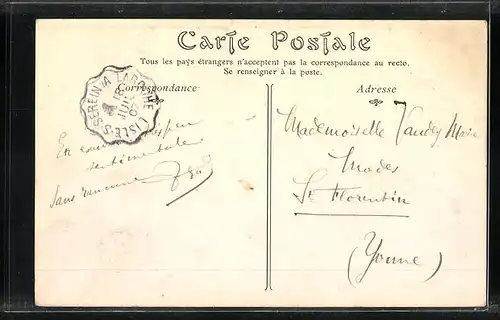 Carte Postale
Tous les pays étrangers n'acceptent pas la correspondance au recto.
Se renseigner à la poste.
Correspondance
Adresse
L'ISLE-S-SEREIN A LAROCHE
En peu
sentimentale
Sans rancune
Mademoiselle Vaudey Marie
Modes
St Florentin
(Yonne)